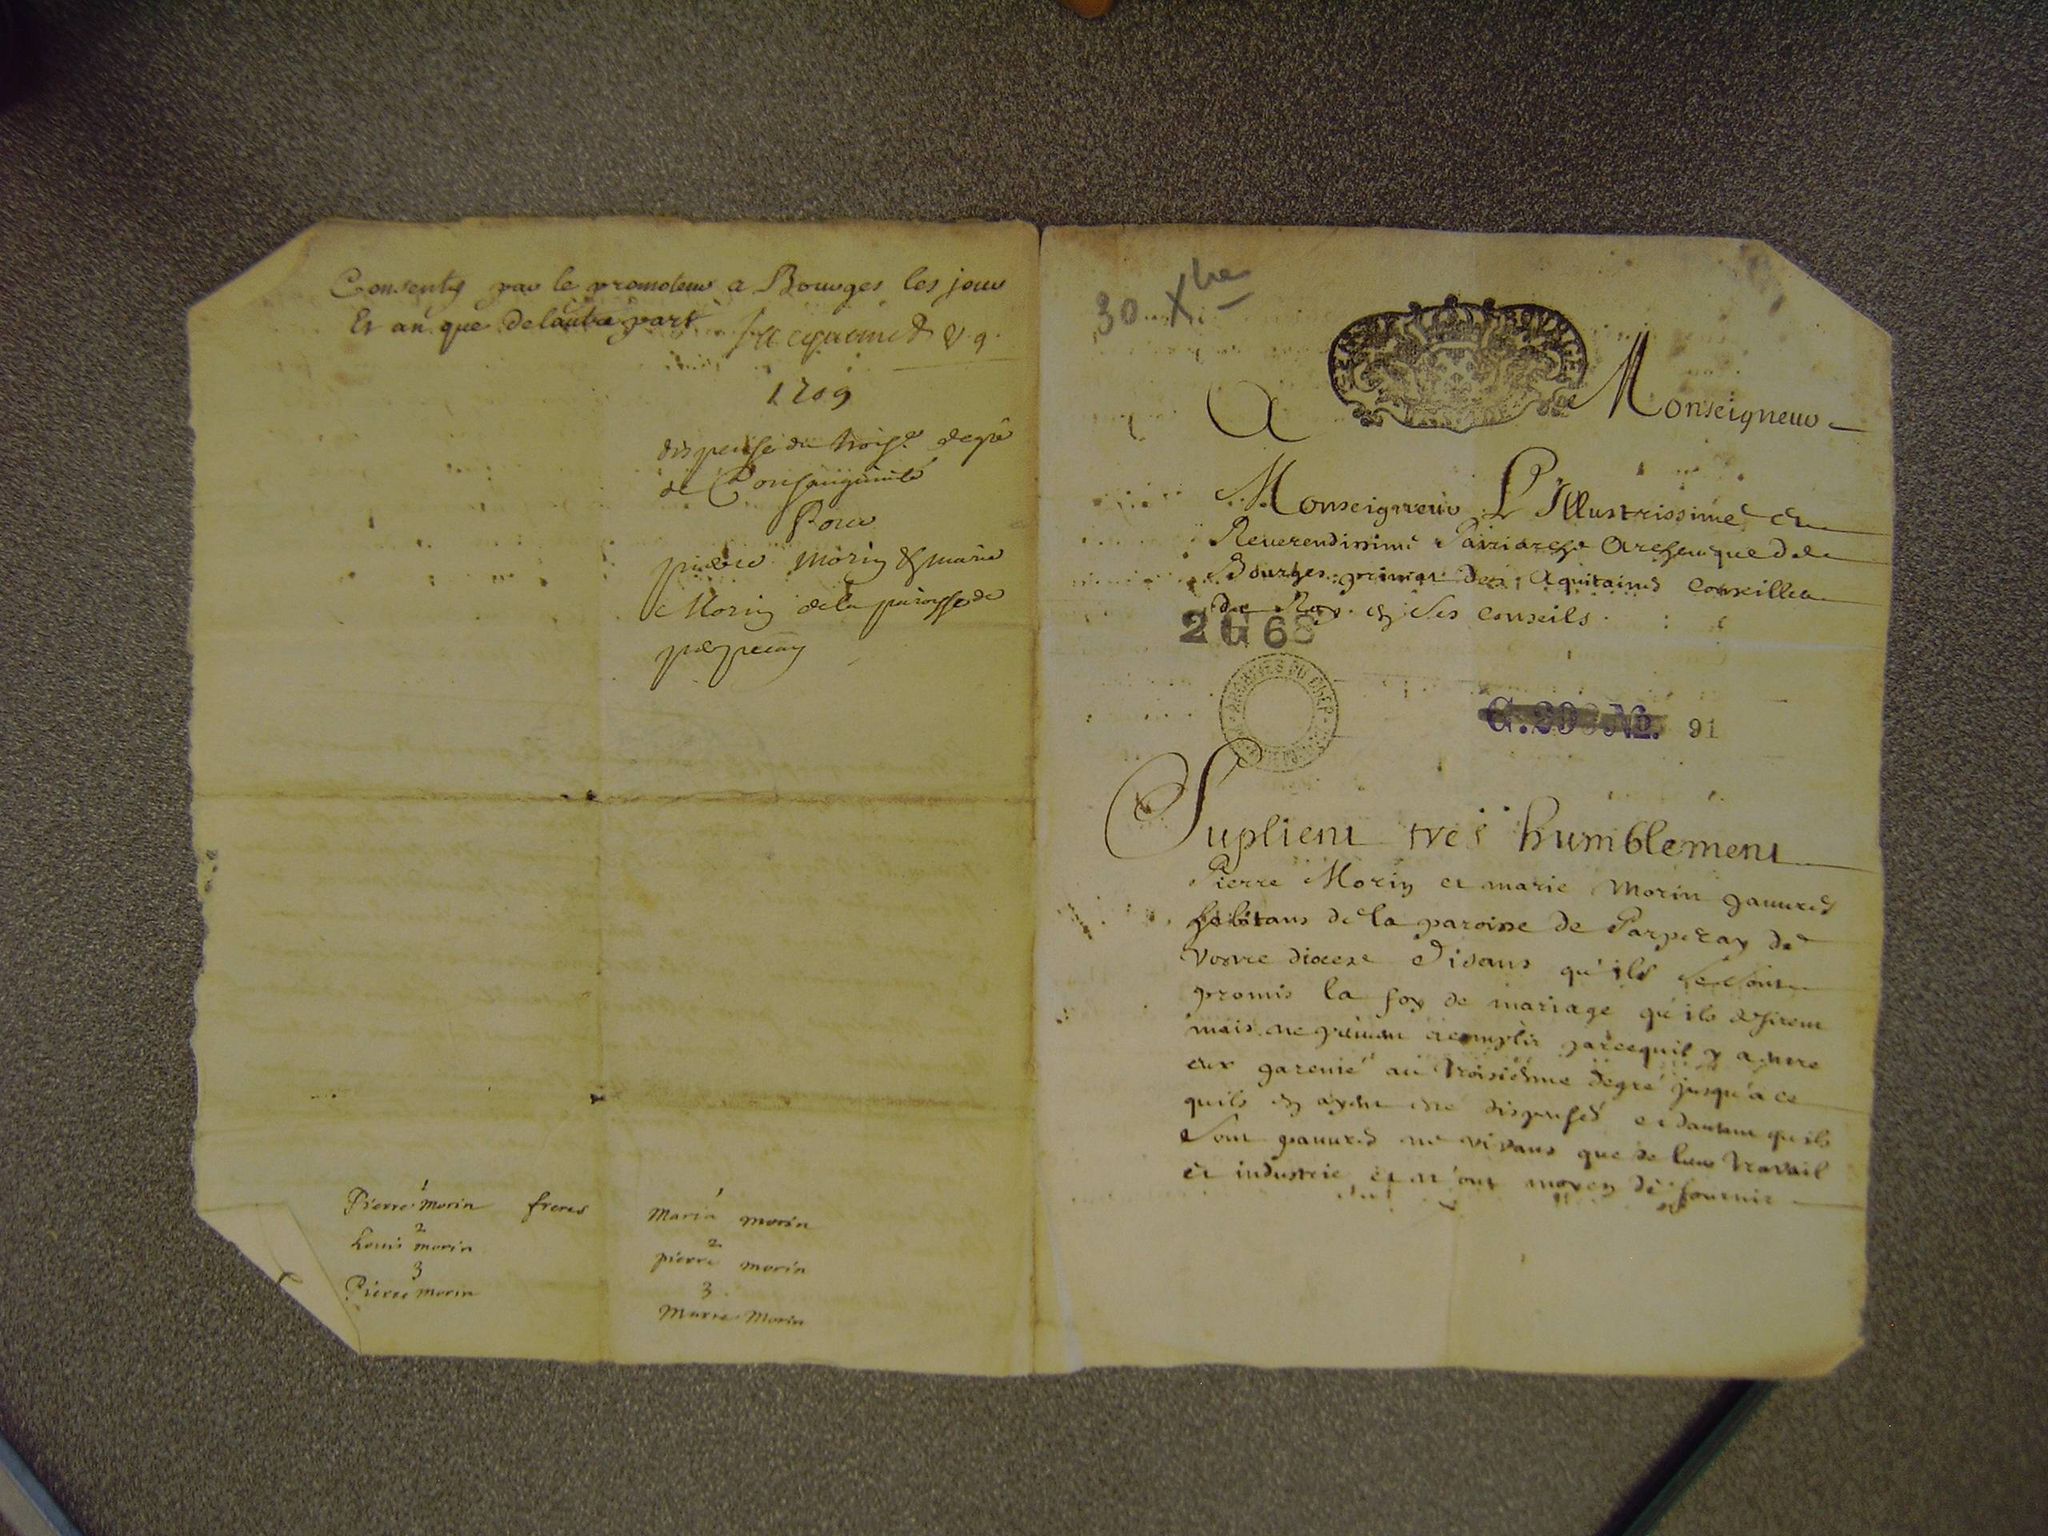 Consentÿ par le promoteur a Bourges les jour
Et an que de lautre part
1709
dispense du trois.e degré
de Consanguinité
Pour
pierre Morin & marie
Morin de la paroysse de
parpecay
Pierre 1 morin freres
Louis 2 morin
3
Pierre morin
1
Maria morin
2
pierre morin
3
Marie Morin
30 Xbre
A Monseigneur
Monseigneur L'Illustrissime et
Reverendissime Patriarche Archeuque de
Bourges primat des Aquitaines Conseiller
du Roy en ses conseils
2 G 68
91
Suplient tres humblement
Pierre Morin et marie Morin pauures
habitans de la paroisse de Parpecay de
vostre diocese disans qu'ils se sont
promis la foy de mariage qu'ils desirent
mais ne peuuent accomplir parcequil y a entre
eux parenté au troisiesme degré jusqu'a ce
quils en ayent esté dispensés et dautant quils
sont pauures ne vivans que de leur travail
et industrie et n'ont moyen de fournir